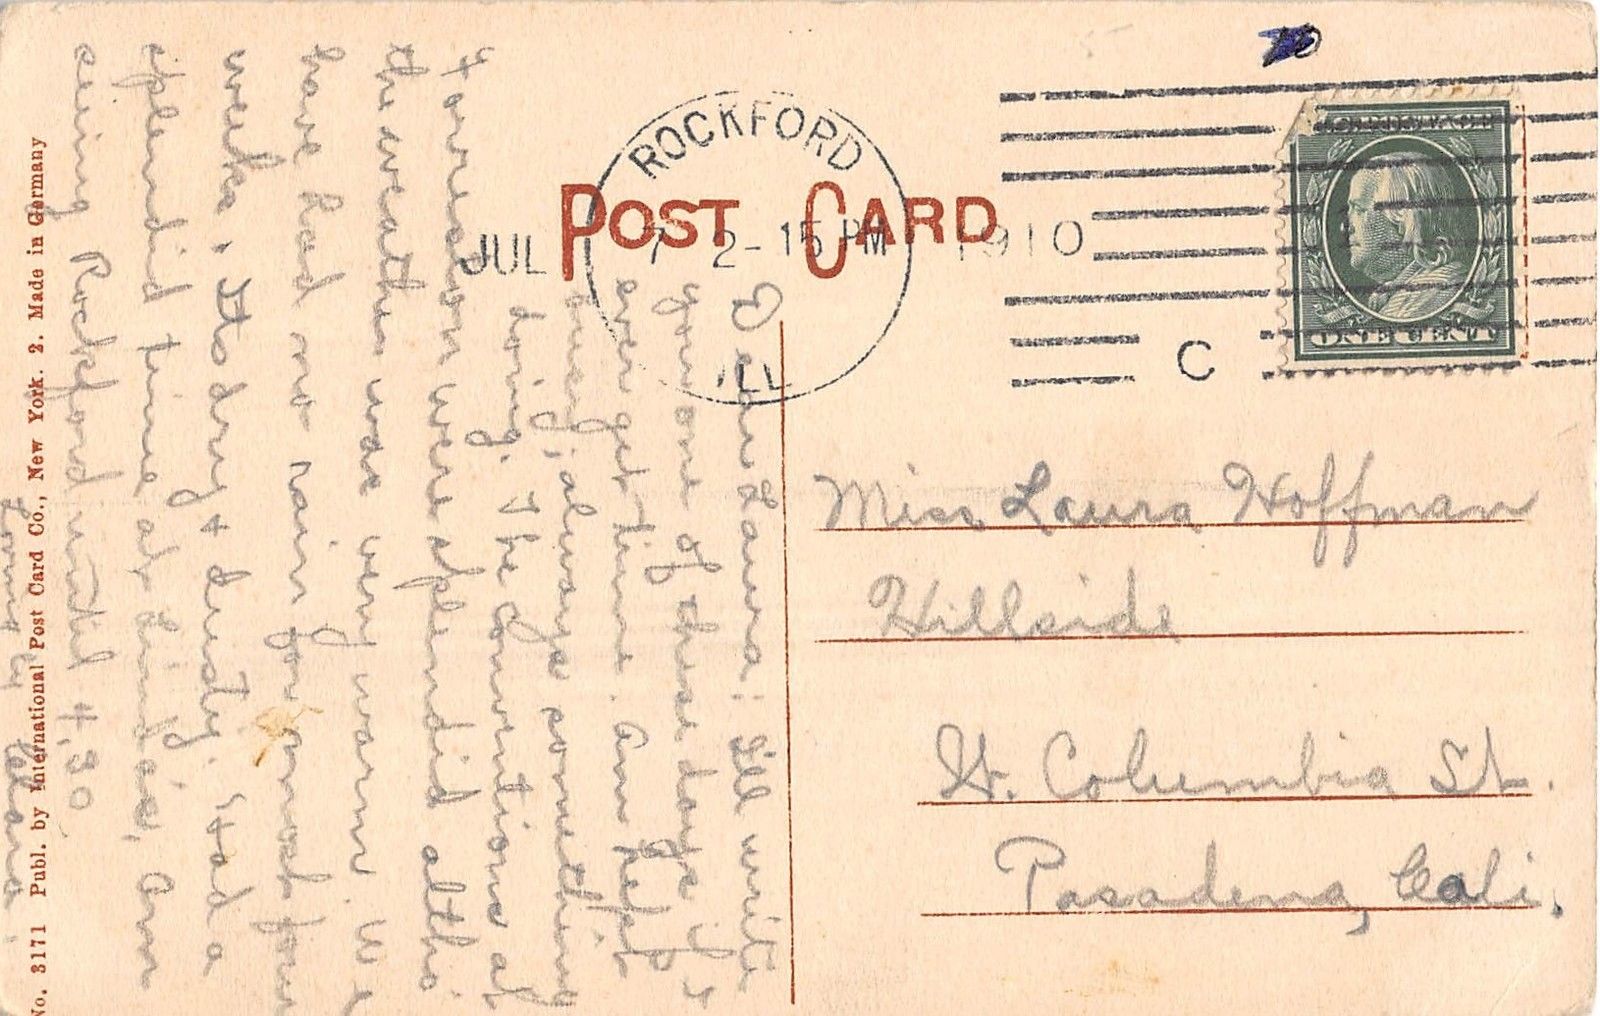 POST CARD
ROCKFORD
ILL
JUL 7 2-15 PM 1910
C
ONE CENT
Miss Laura Hoffman
Hillside
St. Columbia St.
Pasadena, Cali.
Dear Laura: I'll write
you one of these days if I
ever get time. Am kept
busy, always something
doing. The conventions at
Forreston were splendid altho'
the weather was very warm. We
have had no rain for most four
weeks. Its dry & dusty. Had a
splendid time at Linda's. Am
seeing Rockford until 4,30.
Lovingly
No. 3171 Publ. by International Post Card Co., New York. 2. Made in Germany